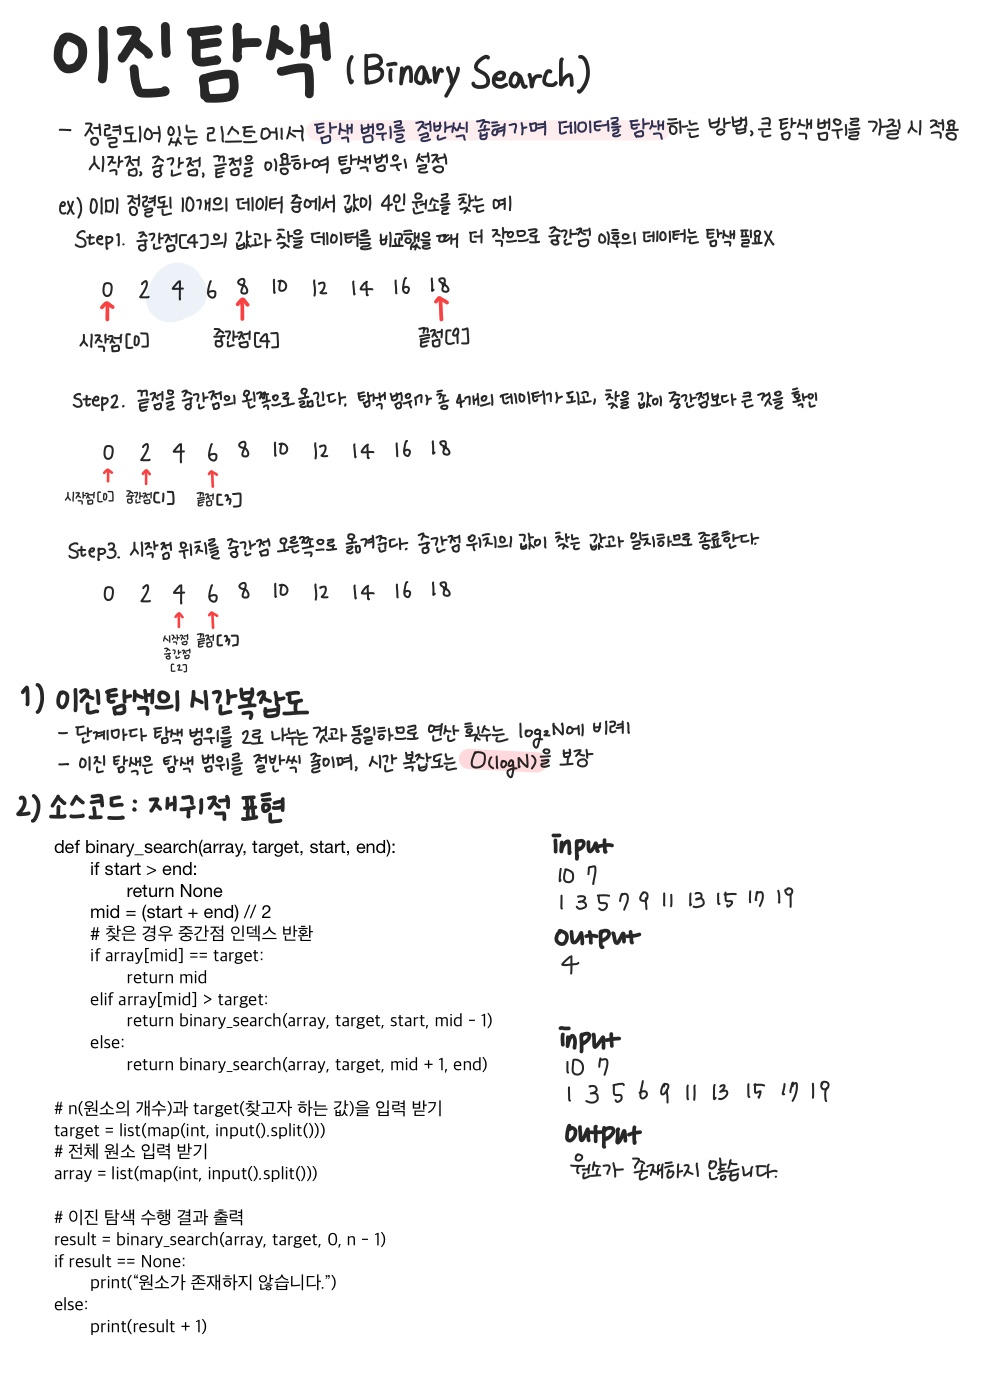 이진탐색 (Binary Search)
- 정렬되어 있는 리스트에서 탐색 범위를 절반씩 좁혀가며 데이터를 탐색하는 방법, 큰 탐색범위를 가질 시 적용
시작점, 중간점, 끝점을 이용하여 탐색범위 설정
ex) 이미 정렬된 10개의 데이터 중에서 값이 4인 원소를 찾는 예
Step1. 중간점[4]의 값과 찾을 데이터를 비교했을 때 더 작으므로 중간점 이후의 데이터는 탐색 필요X
0 2 4 6 8 10 12 14 16 18
시작점[0] 중간점[4] 끝점[9]
Step2. 끝점을 중간점의 왼쪽으로 옮긴다. 탐색 범위가 총 4개의 데이터가 되고, 찾을 값이 중간점보다 큰 것을 확인
0 2 4 6 8 10 12 14 16 18
시작점[0] 중간점[1] 끝점[3]
Step3. 시작점 위치를 중간점 오른쪽으로 옮겨준다. 중간점 위치의 값이 찾는 값과 일치하므로 종료한다.
0 2 4 6 8 10 12 14 16 18
시작점 끝점[3]
중간점
[2]
1) 이진탐색의 시간복잡도
- 단계마다 탐색 범위를 2로 나누는 것과 동일하므로 연산 횟수는 log₂N에 비례
- 이진 탐색은 탐색 범위를 절반씩 줄이며, 시간 복잡도는 O(logN)을 보장
2) 소스코드 : 재귀적 표현
def binary_search(array, target, start, end):
if start > end:
return None
mid = (start + end) // 2
# 찾은 경우 중간점 인덱스 반환
if array[mid] == target:
return mid
elif array[mid] > target:
return binary_search(array, target, start, mid - 1)
else:
return binary_search(array, target, mid + 1, end)
# n(원소의 개수)과 target(찾고자 하는 값)을 입력 받기
target = list(map(int, input().split()))
# 전체 원소 입력 받기
array = list(map(int, input().split()))
# 이진 탐색 수행 결과 출력
result = binary_search(array, target, 0, n - 1)
if result == None:
print(“원소가 존재하지 않습니다.”)
else:
print(result + 1)
input
10 7
1 3 5 7 9 11 13 15 17 19
output
4
input
10 7
1 3 5 6 9 11 13 15 17 19
output
원소가 존재하지 않습니다.